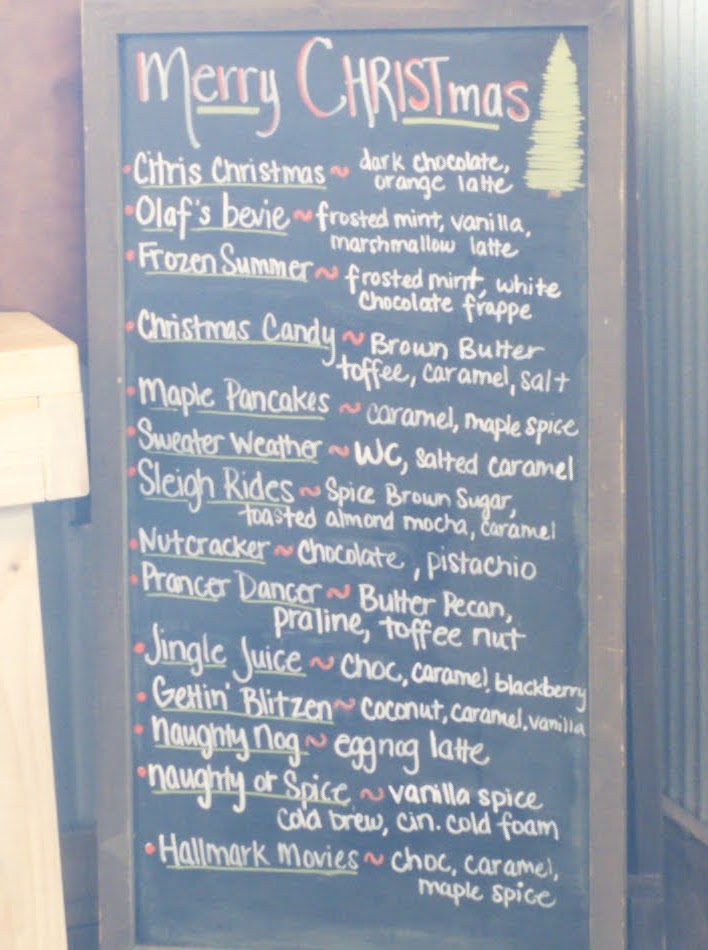 Merry CHRISTmas
Citris Christmas ~ dark chocolate,
orange latte
Olaf's bevie ~ frosted mint, vanilla,
marshmallow latte
Frozen Summer ~ frosted mint, white
chocolate frappe
Christmas Candy ~ Brown Butter
toffee, caramel, salt
Maple Pancakes ~ caramel, maple spice
Sweater Weather ~ WC, salted caramel
Sleigh Rides ~ Spice Brown Sugar,
toasted almond mocha, caramel
Nutcracker ~ Chocolate, pistachio
Prancer Dancer ~ Butter Pecan,
praline, toffee nut
Jingle Juice ~ choc, caramel, blackberry
Gettin' Blitzen ~ coconut, caramel, vanilla
Naughty Nog ~ eggnog latte
naughty or Spice ~ vanilla spice
cold brew, cin. cold foam
Hallmark Movies ~ choc, caramel,
maple spice